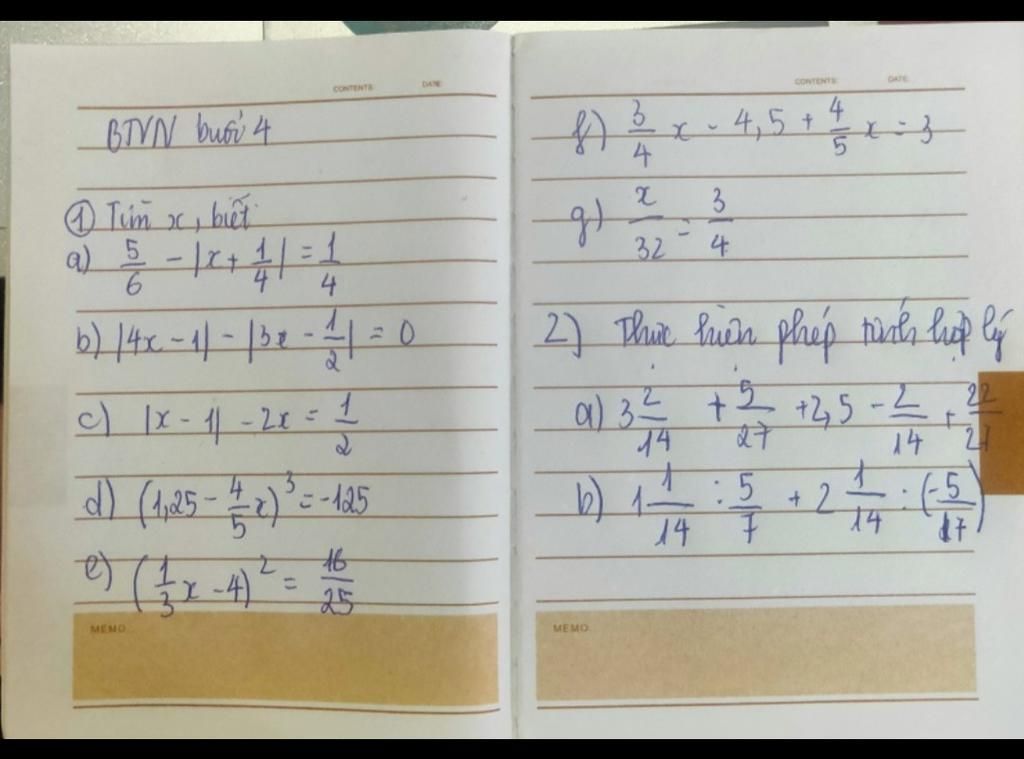 CONTENTS: DATE:
BTVN buổi 4
① Tìm x, biết
a) 5/6 - |x + 1/4| = 1/4
b) |4x - 1| - |3x - 1/2| = 0
c) |x - 1| - 2x = 1/2
d) (1,25 - 4/5 x)³ = -125
e) (1/3 x - 4)² = 16/25
MEMO
CONTENTS: DATE:
f) 3/4 x - 4,5 + 4/5 x = 3
g) x/32 = 3/4
2) Thực hiện phép tính hợp lý
a) 3 2/14 + 5/27 + 2,5 - 2/14 + 22/27
b) 1 1/14 : 5/7 + 2 1/14 : (-5/17)
MEMO